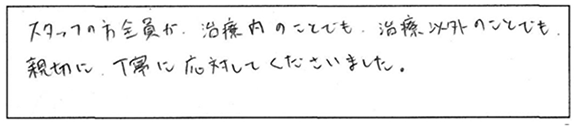 スタッフの方全員が、治療内のことでも、治療以外のことでも、
親切に、丁寧に応対してくださいました。